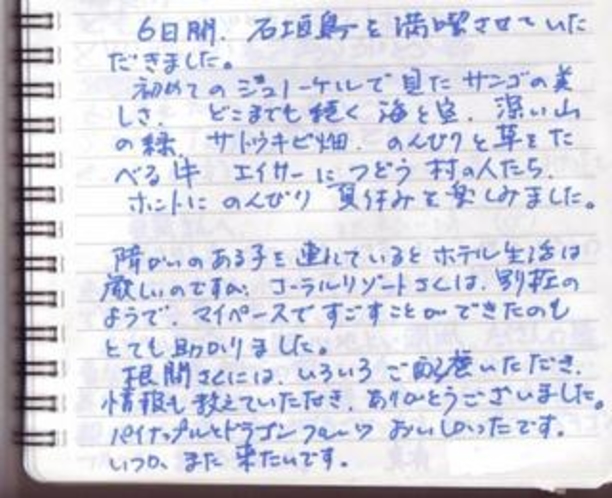 6日間、石垣島を満喫させていた
だきました。
初めてのシュノーケルで見たサンゴの美
しさ、どこまでも続く海と空、深い山
の緑、サトウキビ畑、のんびりと草をた
べる牛 エイサーにつどう村の人たち、
ホントにのんびり 夏休みを楽しみました。
障がいのある子を連れているとホテル生活は
厳しいのですが、コーラルリゾートさんは、別荘の
ようで、マイペースですごすことができたのも
とても助かりました。
根間さんには、いろいろご配慮いただき、
情報も教えていただき、ありがとうございました。
パイナップルとドラゴンフルーツ おいしかったです。
いつか、また来たいです。